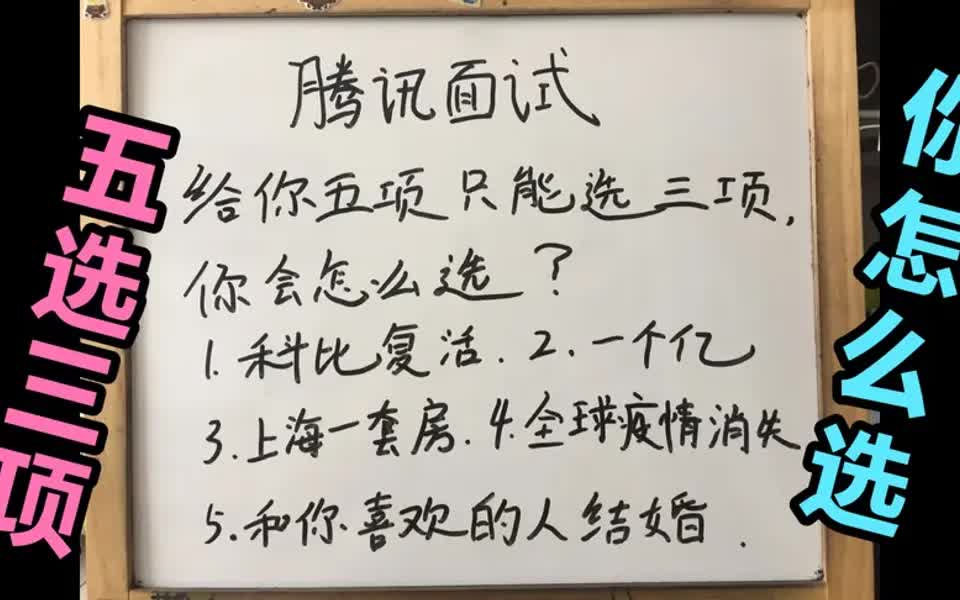 五选三项
腾讯面试
给你五项只能选三项,
你会怎么选?
1.科比复活.2.一个亿
3.上海一套房.4.全球疫情消失
5.和你喜欢的人结婚.
你怎么选